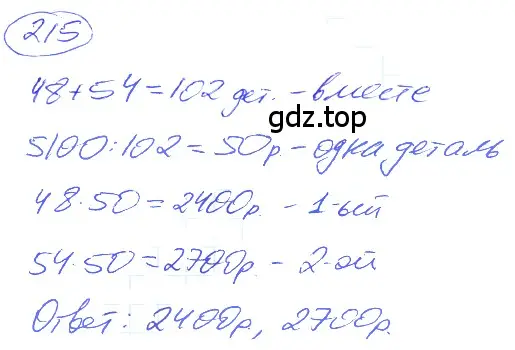 215
48+54=102 дет. - вместе
gdz.top
5100:102=50р. - одна деталь
48·50=2400р. - 1-ый
54·50=2700р. - 2-ой
Ответ: 2400р, 2700р.